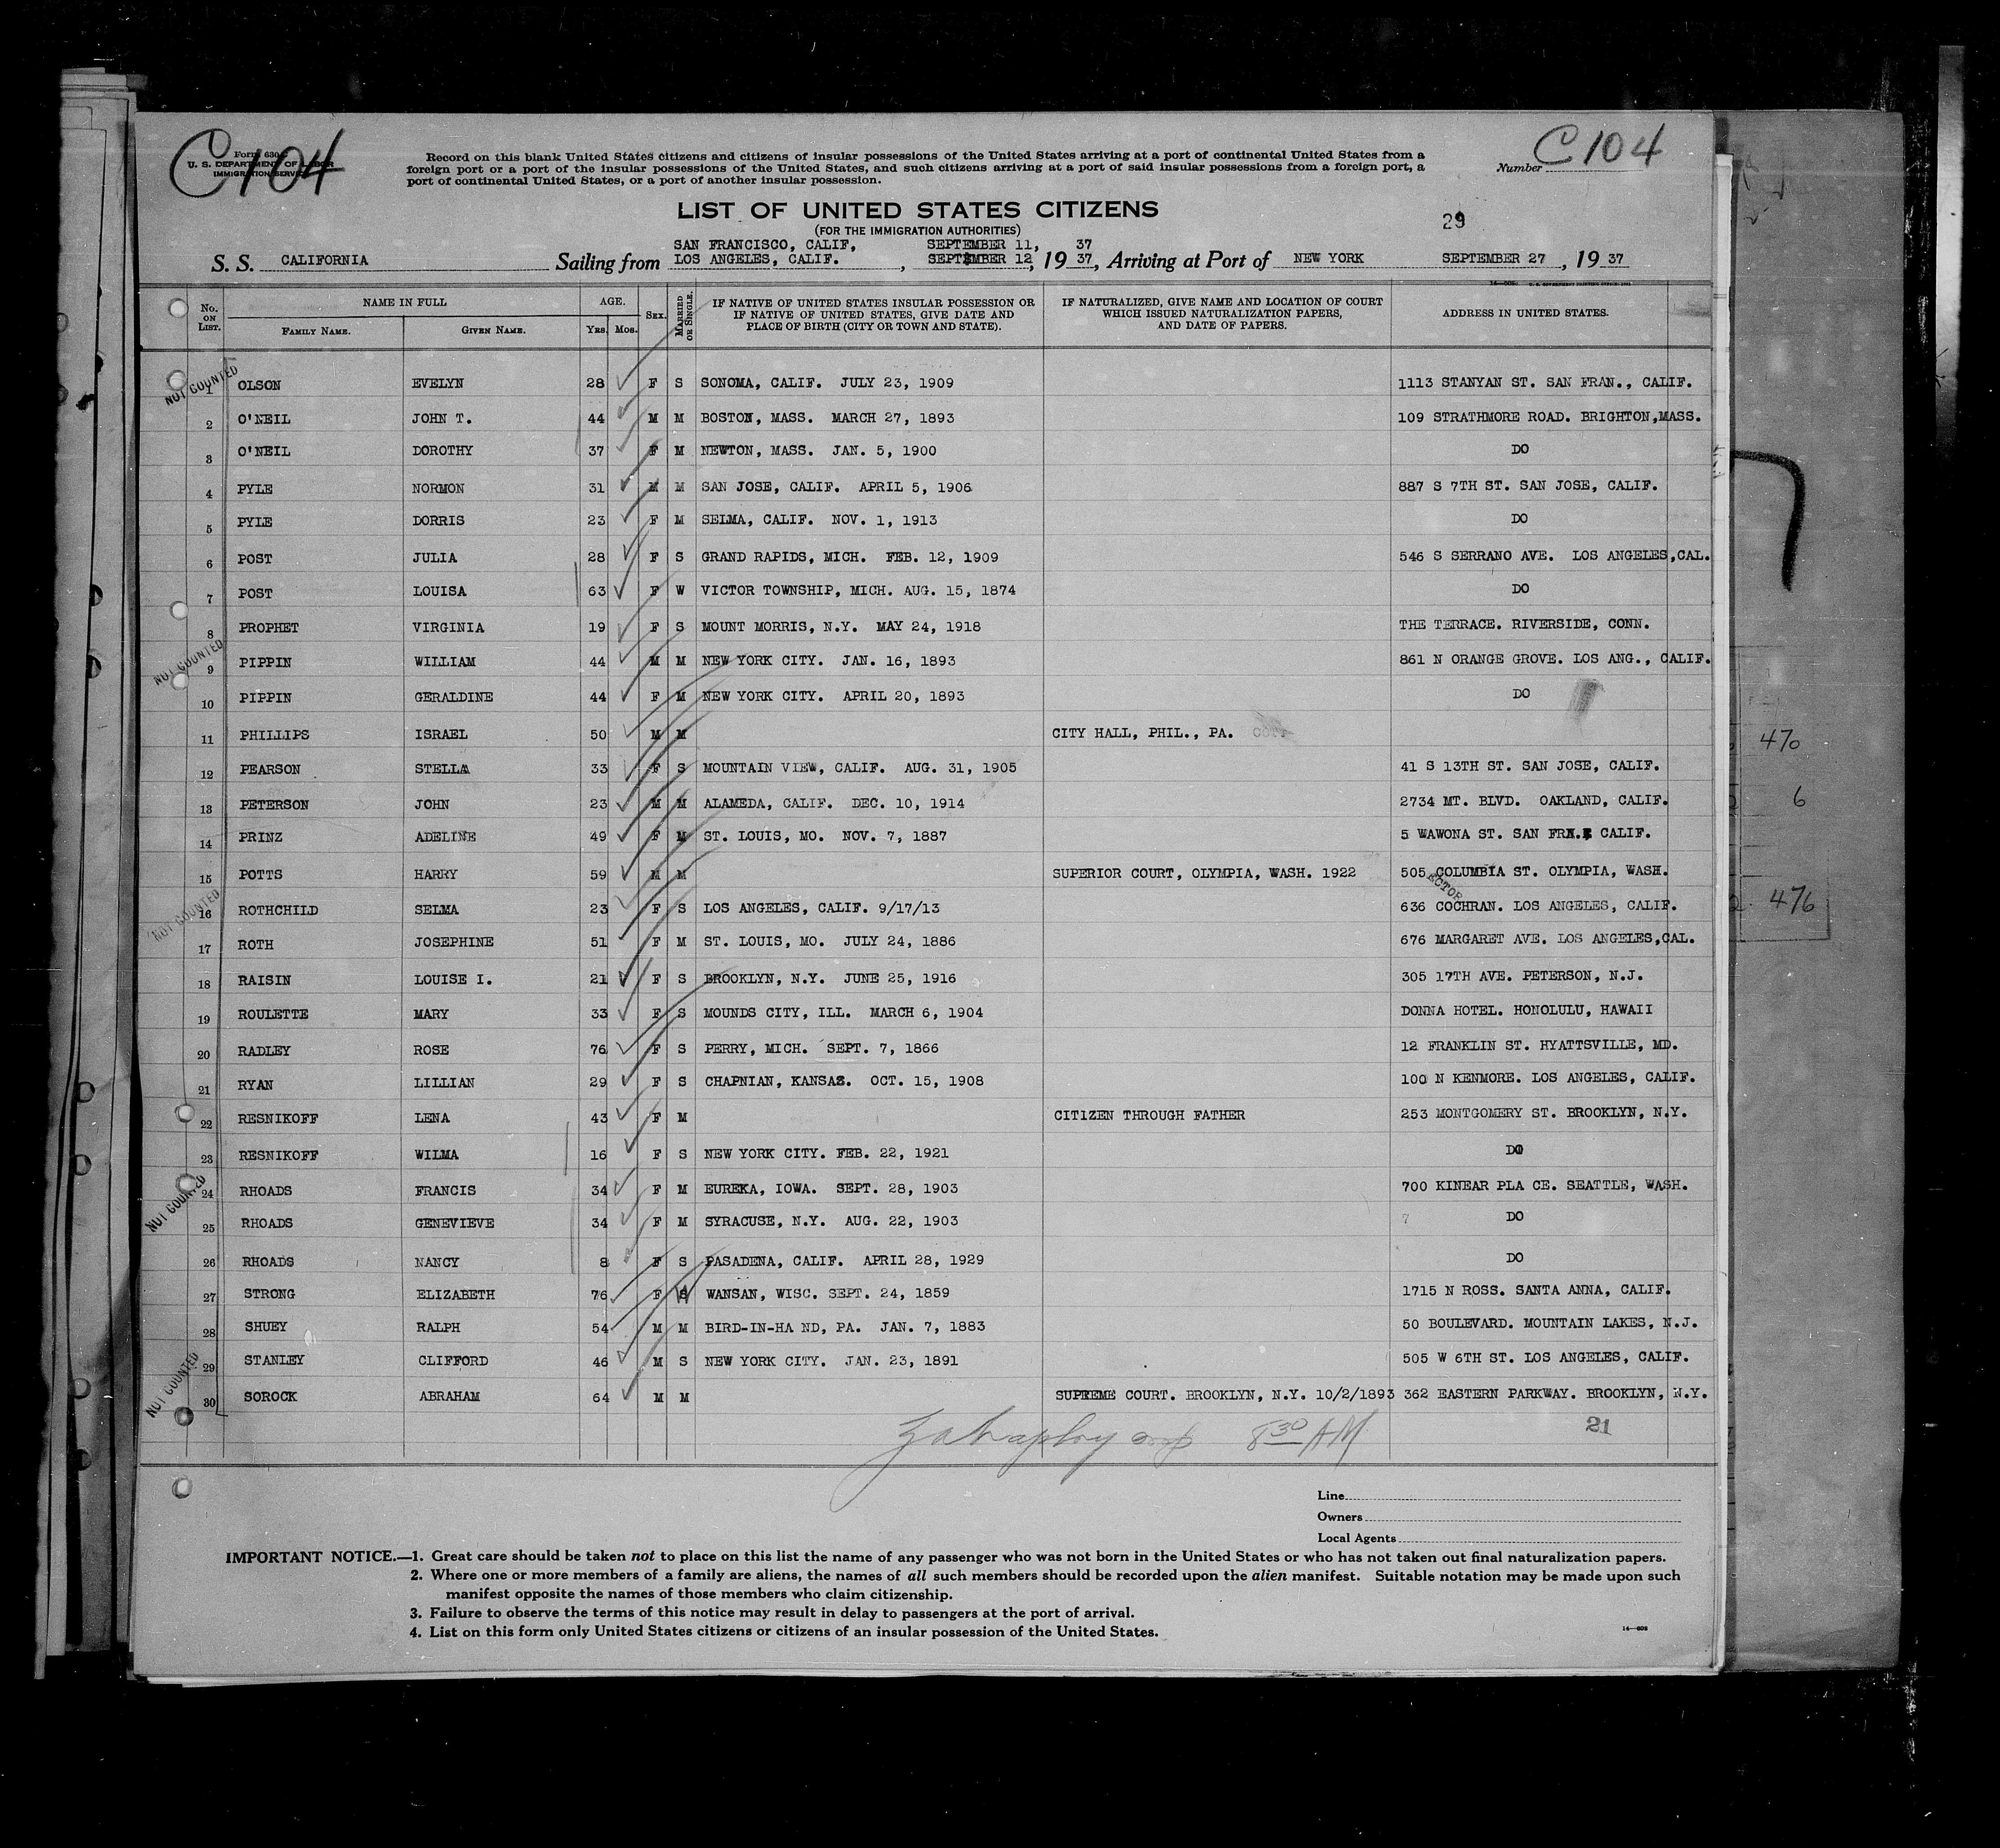 C104
Form 630
U. S. DEPARTMENT OF LABOR
IMMIGRATION SERVICE
Record on this blank United States citizens and citizens of insular possessions of the United States arriving at a port of continental United States from a
foreign port or a port of the insular possessions of the United States, and such citizens arriving at a port of said insular possessions from a foreign port, a
port of continental United States, or a port of another insular possession.
Number C104
LIST OF UNITED STATES CITIZENS
(FOR THE IMMIGRATION AUTHORITIES)
29
SAN FRANCISCO, CALIF, SEPTEMBER 11, 37
S. S. CALIFORNIA Sailing from LOS ANGELES, CALIF. , SEPTEMBER 12, 19 37, Arriving at Port of NEW YORK SEPTEMBER 27 , 19 37
No. ON LIST. NAME IN FULL FAMILY NAME. GIVEN NAME. AGE. YRS. MOS. SEX. MARRIED OR SINGLE. IF NATIVE OF UNITED STATES INSULAR POSSESSION OR IF NATIVE OF UNITED STATES, GIVE DATE AND PLACE OF BIRTH (CITY OR TOWN AND STATE). IF NATURALIZED, GIVE NAME AND LOCATION OF COURT WHICH ISSUED NATURALIZATION PAPERS, AND DATE OF PAPERS. ADDRESS IN UNITED STATES.
NOT COUNTED 1 OLSON EVELYN 28 F S SONOMA, CALIF. JULY 23, 1909 1113 STANYAN ST. SAN FRAN., CALIF.
2 O'NEIL JOHN T. 44 M M BOSTON, MASS. MARCH 27, 1893 109 STRATHMORE ROAD. BRIGHTON,MASS.
3 O'NEIL DOROTHY 37 F M NEWTON, MASS. JAN. 5, 1900 DO
4 PYLE NORMON 31 M M SAN JOSE, CALIF. APRIL 5, 1906 887 S 7TH ST. SAN JOSE, CALIF.
5 PYLE DORRIS 23 F M SELMA, CALIF. NOV. 1, 1913 DO
6 POST JULIA 28 F S GRAND RAPIDS, MICH. FEB. 12, 1909 546 S SERRANO AVE. LOS ANGELES,CAL.
7 POST LOUISA 63 F W VICTOR TOWNSHIP, MICH. AUG. 15, 1874 DO
8 PROPHET VIRGINIA 19 F S MOUNT MORRIS, N.Y. MAY 24, 1918 THE TERRACE. RIVERSIDE, CONN.
NOT COUNTED 9 PIPPIN WILLIAM 44 M M NEW YORK CITY. JAN. 16, 1893 861 N ORANGE GROVE. LOS ANG., CALIF.
10 PIPPIN GERALDINE 44 F M NEW YORK CITY. APRIL 20, 1893 DO
11 PHILLIPS ISRAEL 50 M M CITY HALL, PHIL., PA.
12 PEARSON STELLA 33 F S MOUNTAIN VIEW, CALIF. AUG. 31, 1905 41 S 13TH ST. SAN JOSE, CALIF.
13 PETERSON JOHN 23 M M ALAMEDA, CALIF. DEC. 10, 1914 2734 MT. BLVD. OAKLAND, CALIF.
14 PRINZ ADELINE 49 F M ST. LOUIS, MO. NOV. 7, 1887 5 WAWONA ST. SAN FRN. CALIF.
15 POTTS HARRY 59 M M SUPERIOR COURT, OLYMPIA, WASH. 1922 505 COLUMBIA ST. OLYMPIA, WASH.
ECTOR
NOT COUNTED 16 ROTHCHILD SELMA 23 F S LOS ANGELES, CALIF. 9/17/13 636 COCHRAN. LOS ANGELES, CALIF.
17 ROTH JOSEPHINE 51 F M ST. LOUIS, MO. JULY 24, 1886 676 MARGARET AVE. LOS ANGELES,CAL.
18 RAISIN LOUISE I. 21 F S BROOKLYN, N.Y. JUNE 25, 1916 305 17TH AVE. PETERSON, N.J.
19 ROULETTE MARY 33 F S MOUNDS CITY, ILL. MARCH 6, 1904 DONNA HOTEL. HONOLULU, HAWAII
20 RADLEY ROSE 76 F S PERRY, MICH. SEPT. 7, 1866 12 FRANKLIN ST. HYATTSVILLE, MD.
21 RYAN LILLIAN 29 F S CHAPNIAN, KANSAS. OCT. 15, 1908 100 N KENMORE. LOS ANGELES, CALIF.
22 RESNIKOFF LENA 43 F M CITIZEN THROUGH FATHER 253 MONTGOMERY ST. BROOKLYN, N.Y.
23 RESNIKOFF WILMA 16 F S NEW YORK CITY. FEB. 22, 1921 DO
NOT COUNTED 24 RHOADS FRANCIS 34 F M EUREKA, IOWA. SEPT. 28, 1903 700 KINEAR PLA CE. SEATTLE, WASH.
25 RHOADS GENEVIEVE 34 F M SYRACUSE, N.Y. AUG. 22, 1903 DO
26 RHOADS NANCY 8 F S PASADENA, CALIF. APRIL 28, 1929 DO
27 STRONG ELIZABETH 76 F W WANSAN, WISC. SEPT. 24, 1859 1715 N ROSS. SANTA ANNA, CALIF.
28 SHUEY RALPH 54 M M BIRD-IN-HA ND, PA. JAN. 7, 1883 50 BOULEVARD. MOUNTAIN LAKES, N.J.
NOT COUNTED 29 STANLEY CLIFFORD 46 M S NEW YORK CITY. JAN. 23, 1891 505 W 6TH ST. LOS ANGELES, CALIF.
30 SOROCK ABRAHAM 64 M M SUPREME COURT. BROOKLYN, N.Y. 10/2/1893 362 EASTERN PARKWAY. BROOKLYN, N.Y.
8 30 AM
21
Line
Owners
Local Agents
IMPORTANT NOTICE.—1. Great care should be taken not to place on this list the name of any passenger who was not born in the United States or who has not taken out final naturalization papers.
2. Where one or more members of a family are aliens, the names of all such members should be recorded upon the alien manifest. Suitable notation may be made upon such
manifest opposite the names of those members who claim citizenship.
3. Failure to observe the terms of this notice may result in delay to passengers at the port of arrival.
4. List on this form only United States citizens or citizens of an insular possession of the United States.
470
6
476